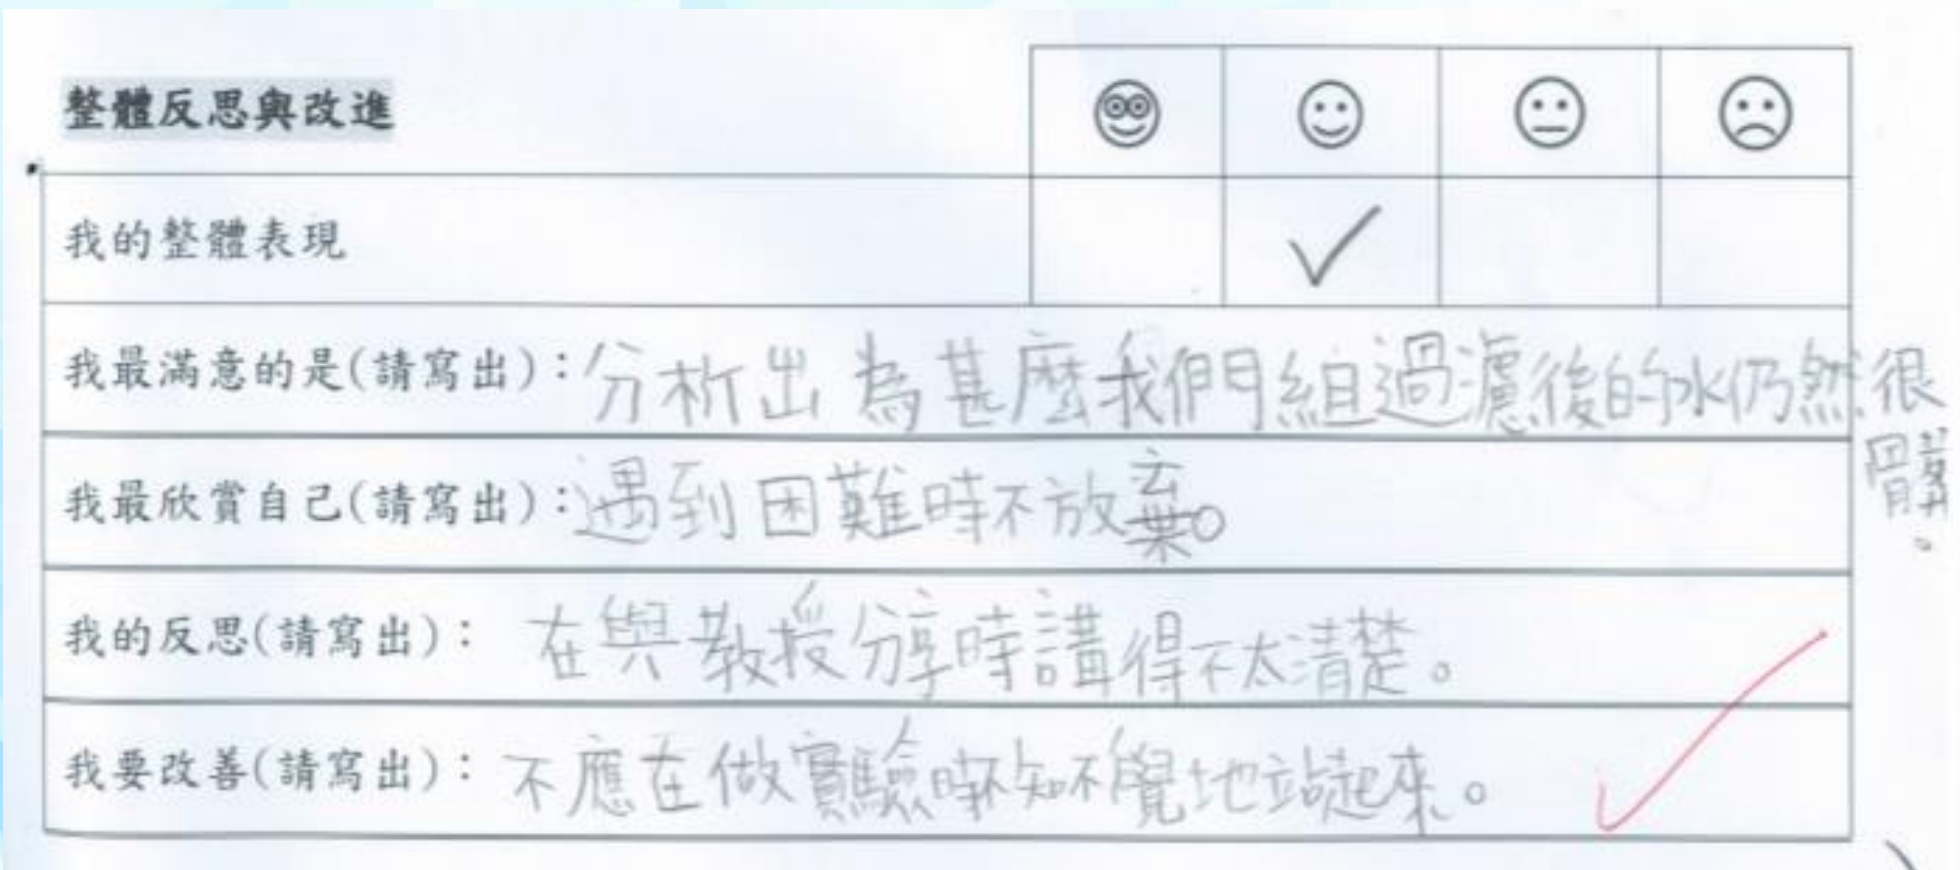 整體反思與改進
我的整體表現
我最滿意的是(請寫出)：分析出為甚麼我們組過濾後的水仍然很髒。
我最欣賞自己(請寫出)：遇到困難時不放棄。
我的反思(請寫出)： 在與教授分享時講得不太清楚。
我要改善(請寫出)： 不應在做實驗時不知不覺地站起來。